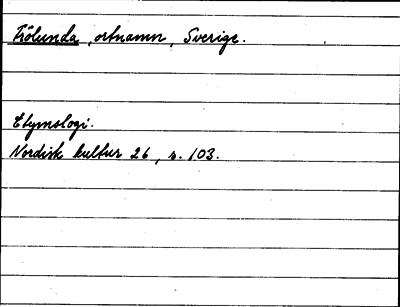 Frölunda, ortnamn, Sverige.
Etymologi.
Nordisk kultur 26, s. 103.